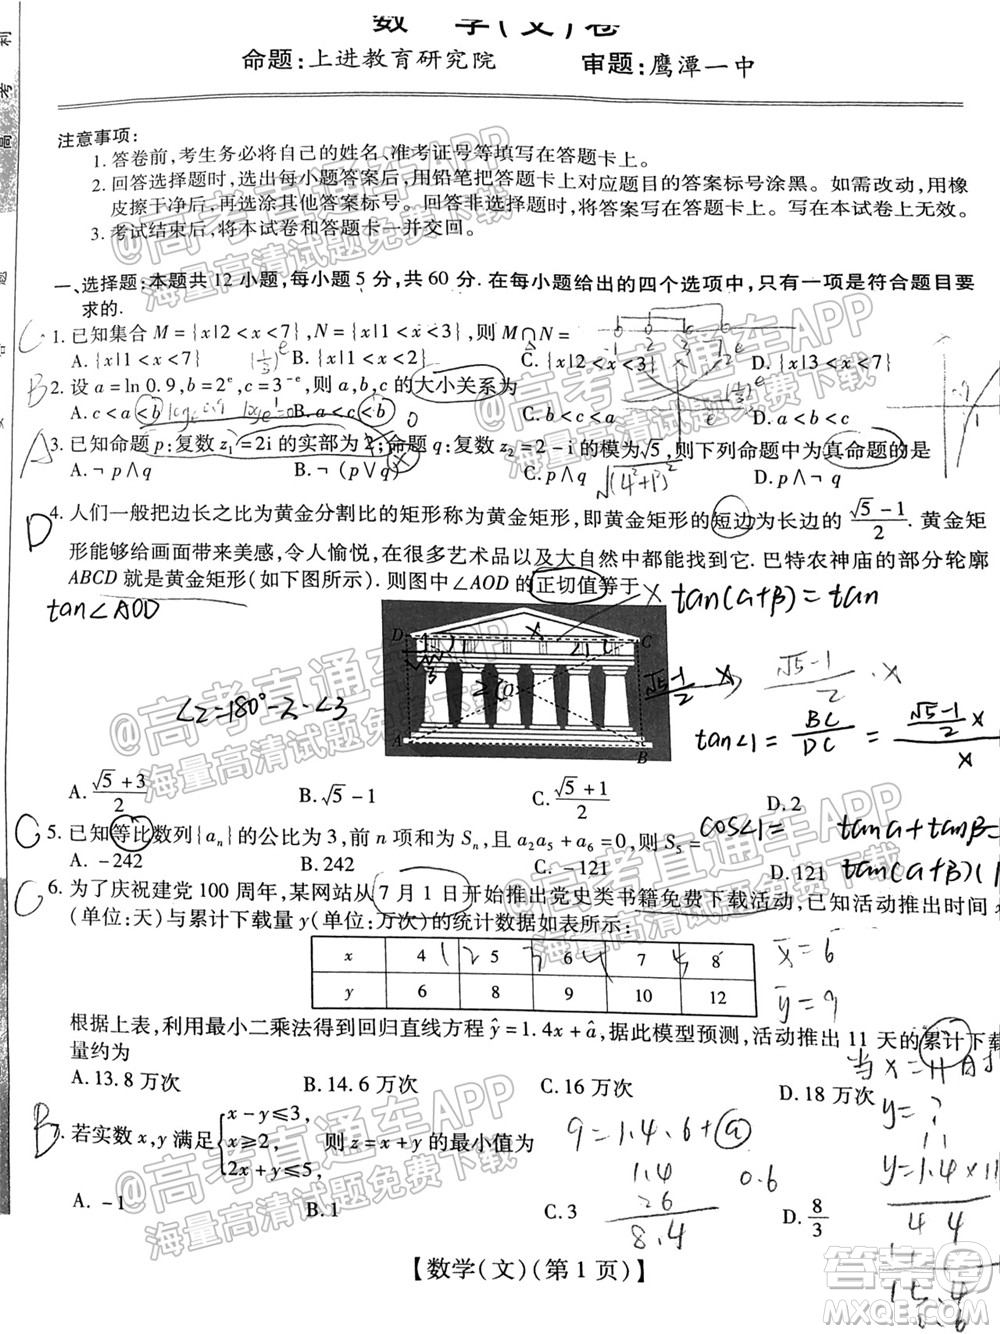 数 学(文)卷
命题:上进教育研究院 审题:鹰潭一中
注意事项:
1. 答卷前,考生务必将自己的姓名、准考证号等填写在答题卡上。
2. 回答选择题时,选出每小题答案后,用铅笔把答题卡上对应题目的答案标号涂黑。如需改动,用橡
皮擦干净后,再选涂其他答案标号。回答非选择题时,将答案写在答题卡上。写在本试卷上无效。
3. 考试结束后,将本试卷和答题卡一并交回。
一、选择题:本题共 12 小题,每小题 5 分,共 60 分. 在每小题给出的四个选项中,只有一项是符合题目要
求的.
C 1. 已知集合 M = {x|2 < x < 7}, N = {x|1 < x < 3}, 则 M∩N =
A. {x|1 < x < 7} B. {x|1 < x < 2} C. {x|2 < x < 3} D. {x|3 < x < 7}
B 2. 设 a = ln 0.9, b = 2^e, c = 3^{-e}, 则 a, b, c 的大小关系为
A. c < a < b B. a < c < b C. b < a < c D. a < b < c
A 3. 已知命题 p:复数 z₁ = 2i 的实部为 2;命题 q:复数 z₂ = 2 - i 的模为 √5, 则下列命题中为真命题的是
A. ¬p∧q B. ¬(p∨q) C. p∧q D. p∧¬q
D 4. 人们一般把边长之比为黄金分割比的矩形称为黄金矩形,即黄金矩形的短边为长边的 (√5-1)/2. 黄金矩
形能够给画面带来美感,令人愉悦,在很多艺术品以及大自然中都能找到它. 巴特农神庙的部分轮廓
ABCD 就是黄金矩形(如下图所示). 则图中∠AOD 的正切值等于
tan∠AOD
x tan(α+β) = tan
D C O A B
∠2=180°-2·∠3
(√5-1)/2 x
(√5-1)/2 x
tan∠1 = BC/DC = ((√5-1)/2 x)/x
A. (√5+3)/2 B. √5-1 C. (√5+1)/2 D. 2
C 5. 已知等比数列{aₙ}的公比为 3, 前 n 项和为 Sₙ, 且 a₂a₅ + a₆ = 0, 则 S₅ =
A. -242 B. 242 C. -121 D. 121
cos∠1 = tanα+tanβ=
tan(α+β)(1
C 6. 为了庆祝建党 100 周年,某网站从 7 月 1 日开始推出党史类书籍免费下载活动,已知活动推出时间 x
(单位:天)与累计下载量 y(单位:万次)的统计数据如表所示:
x 4 5 6 7 8
y 6 8 9 10 12
x = 6
y = 9
根据上表,利用最小二乘法得到回归直线方程 ŷ = 1.4x + â, 据此模型预测,活动推出 11 天的累计下载
量约为
A. 13.8 万次 B. 14.6 万次 C. 16 万次 D. 18 万次
y = ?
B 7. 若实数 x, y 满足 { x - y ≤ 3, x ≥ 2, 2x + y ≤ 5, 则 z = x + y 的最小值为
A. -1 B. 1 C. 3 D. 8/3
9 = 1.4·6 + a
1.4
8.4
0.6
y = 1.4 × 11
4 4
15.4
【数学(文)(第 1 页)】
@高考直通车APP
海量高清试题免费下载
答案圈
MXQE.COM